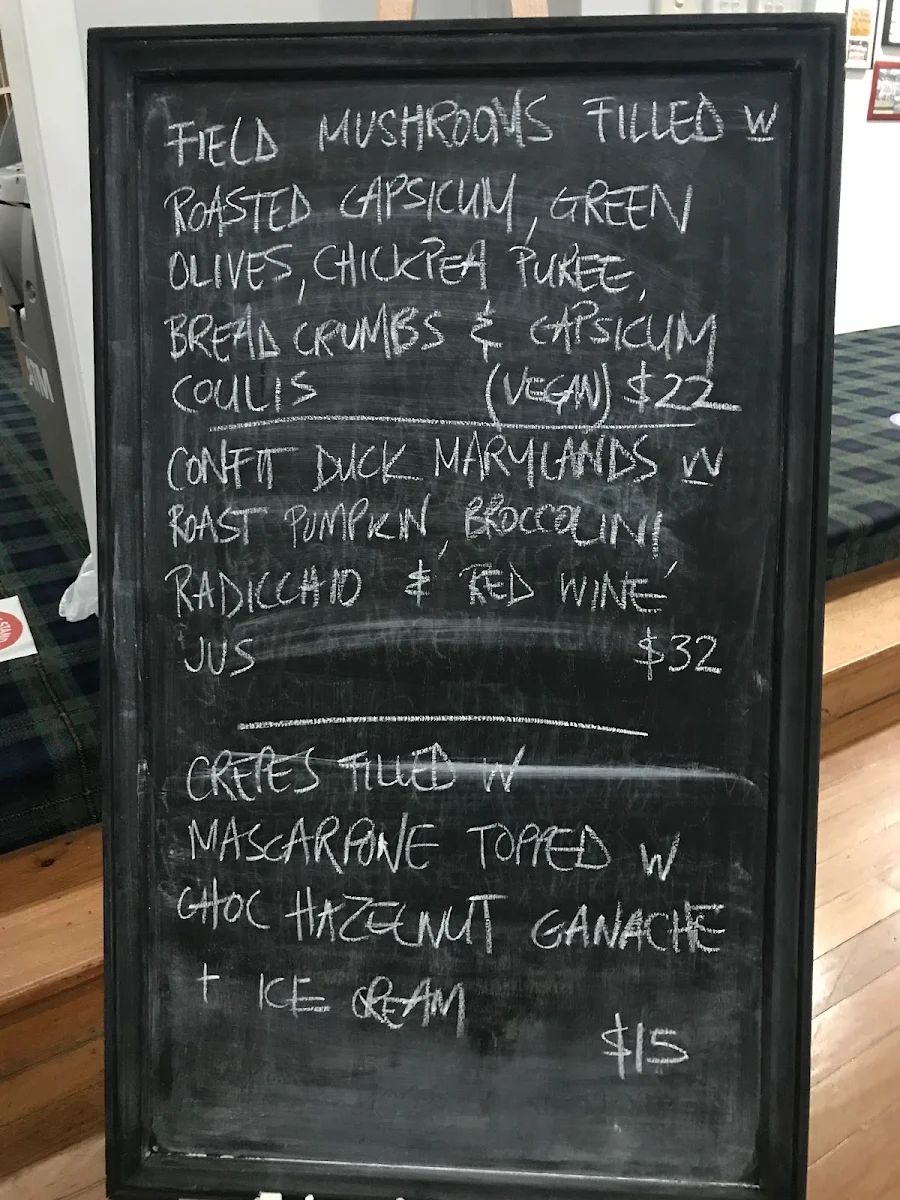 FIELD MUSHROOMS FILLED W
ROASTED CAPSICUM, GREEN
OLIVES, CHICKPEA PUREE,
BREAD CRUMBS & CAPSICUM
COULIS (VEGAN) $22
CONFIT DUCK MARYLANDS W
ROAST PUMPKIN, BROCCOLINI,
RADICCHIO & RED WINE
JUS $32
CREPES FILLED W
MASCARPONE TOPPED W
CHOC HAZELNUT GANACHE
+ ICE CREAM
$15